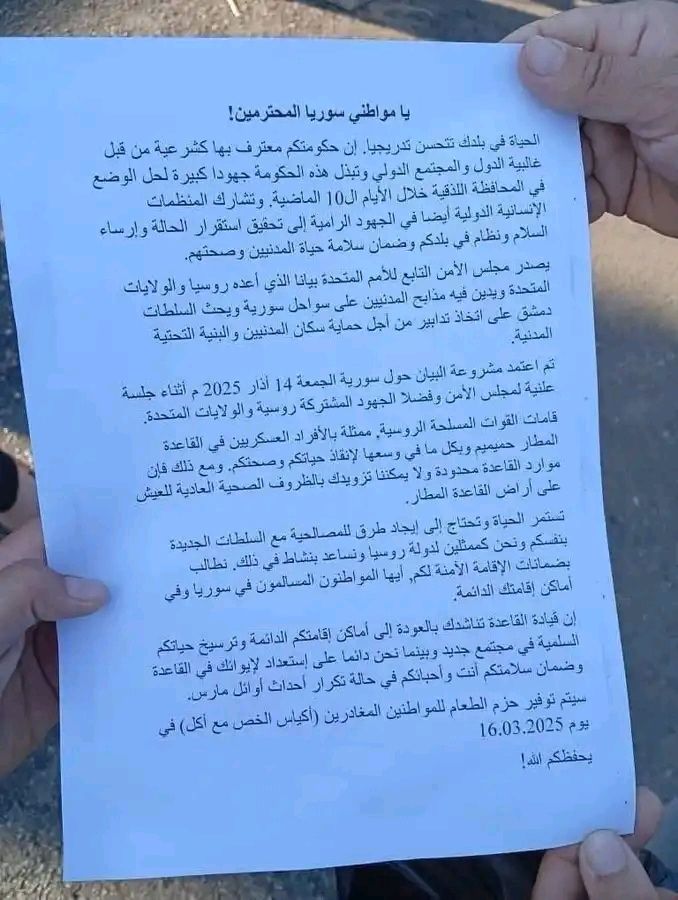 يا مواطني سوريا المحترمين!
الحياة في بلدك تتحسن تدريجيا. إن حكومتكم معترف بها كشرعية من قبل
غالبية الدول والمجتمع الدولي وتبذل هذه الحكومة جهودا كبيرة لحل الوضع
في المحافظة اللذقية خلال الأيام ال10 الماضية. وتشارك المنظمات
الإنسانية الدولية أيضا في الجهود الرامية إلى تحقيق استقرار الحالة وإرساء
السلام ونظام في بلدكم وضمان سلامة حياة المدنيين وصحتهم.
يصدر مجلس الأمن التابع للأمم المتحدة بيانا الذي أعده روسيا والولايات
المتحدة ويدين فيه مذابح المدنيين على سواحل سورية ويحث السلطات
دمشق على اتخاذ تدابير من أجل حماية سكان المدنيين والبنية التحتية
المدنية.
تم اعتمد مشروعة البيان حول سورية الجمعة 14 آذار 2025 م أثناء جلسة
علنية لمجلس الأمن وفضلا الجهود المشتركة روسية والولايات المتحدة.
قامات القوات المسلحة الروسية, ممثلة بالأفراد العسكريين في القاعدة
المطار حميميم وبكل ما في وسعها لإنقاذ حياتكم وصحتكم. ومع ذلك فإن
موارد القاعدة محدودة ولا يمكننا تزويدك بالظروف الصحية العادية للعيش
على أراض القاعدة المطار.
تستمر الحياة وتحتاج إلى إيجاد طرق للمصالحية مع السلطات الجديدة
بنفسكم ونحن كممثلين لدولة روسيا ونساعد بنشاط في ذلك. نطالب
بضمانات الإقامة الأمنة لكم, أيها المواطنون المسالمون في سوريا وفي
أماكن إقامتك الدائمة.
إن قيادة القاعدة تناشدك بالعودة إلى أماكن إقامتكم الدائمة وترسيخ حياتكم
السلمية في مجتمع جديد وبينما نحن دائما على إستعداد لإيوائك في القاعدة
وضمان سلامتكم أنت وأحبائكم في حالة تكرار أحداث أوائل مارس.
سيتم توفير حزم الطعام للمواطنين المغادرين (أكياس الخص مع أكل) في
يوم 16.03.2025
يحفظكم الله!